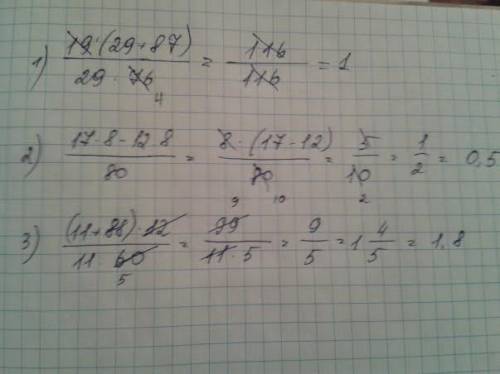 1) 19·(29+87) / 29·76 4 = 116 / 116 = 1
2) 17·8-12·8 / 80 = 8·(17-12) / 80 10 = 5 / 10 2 = 1 / 2 = 0,5
3) (11+88)·12 / 11·60 5 = 99 9 / 11·5 = 9 / 5 = 1 4/5 = 1,8